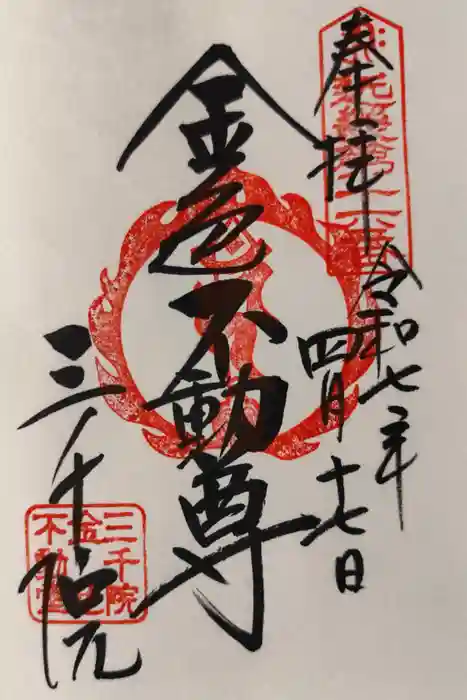 奉拝
令和七年
四月十七日
金色不動尊
三千院
三千院
金色
不動尊